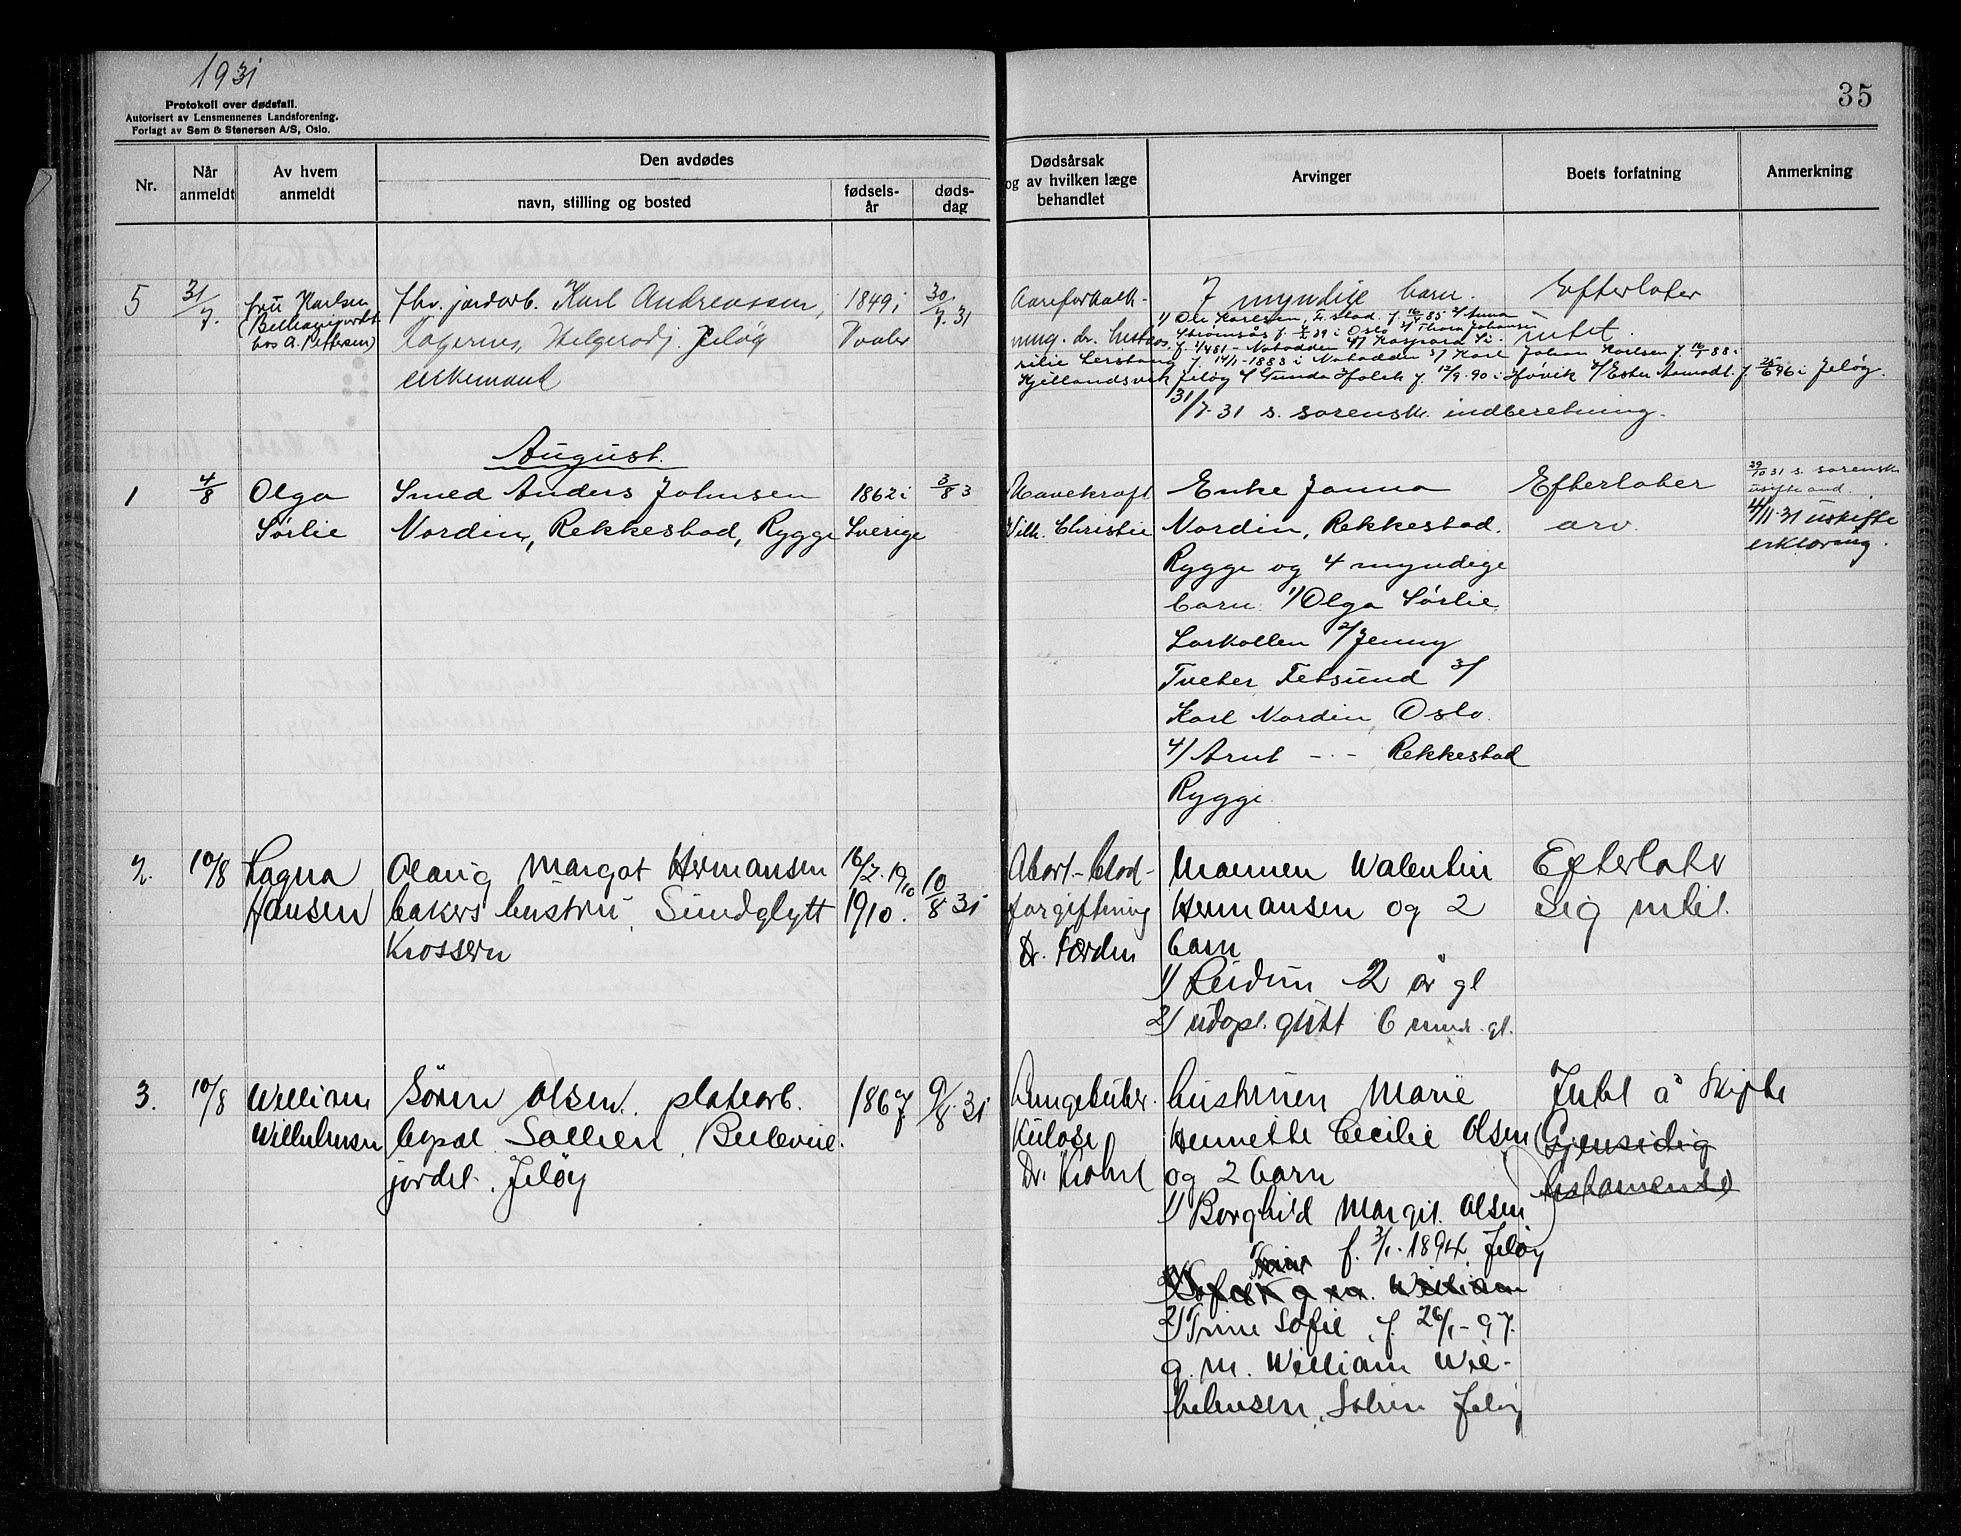 1931
35
Protokoll over dødsfall.
Autorisert av Lensmennenes Landsforening.
Forlagt av Sem & Stenersen A/S, Oslo.
Nr.
Når anmeldt
Av hvem anmeldt
Den avdødes
navn, stilling og bosted
fødsels-år
døds-dag
Dødsårsak og av hvilken læge behandlet
Arvinger
Boets forfatning
Anmerkning
5
31/7.
fru Karlsen
hos A. Pettersen)
fhv. jordarb. Karl Andreassen,
Helgerødj. Jeløy
enkemand
1849 i
Vaaler
30/7.31
Aareforkalk-
ning. dr.
7 myndige barn.
1/ Ole Karlsen, F.stad. f.
i Oslo 3/ Thora Johansen
f. 14/1-1883 i Notodden 5/ Karl Johan Karlsen f. 16/1 88 i
Kjellandsvik Jeløy 6/ Gunda Holck f. 12/9.90 i Høvik 7/ Ester Aamodt f. 25/6 96 i Jeløy.
31/7.31 s. sorensk. indberetning.
Efterlater
intet.
August.
1
4/8
Olga
Sørlie
Smed Anders Johnsen
Nordin, Rekkestad, Rygge
1862 i
Sverige
3/8 3
Mavekræft
Vilh. Christie
Enke Janna
Nordin, Rekkestad.
Rygge og 4 myndige
barn: 1/ Olga Sørlie,
Larkollen 2/ Jenny
Tveter, Fetsund 3/
Karl Nordin, Oslo.
4/ Arnt - - Rekkestad
Rygge.
Efterlater
arv.
29/10 31 s. sorensk
4/11.31 uskifte
erklæring.
2.
10/8
Ragna
Hansen
Olaug Margot Hermansen
bakers hustru, Sundglytt
Krossern
16/7.1910
1910.
10/8 31
Abort-blod-
forgiftning
Dr. Førden
Mannen Walentin
Hermansen og 2
barn
1) Reidun 2 år gl
2) udøpt gutt 6 mnd. gl.
Efterlater
sig intet.
3.
10/8
William
Wilhelmsen
Søren Olsen. platearb.
bopæl Sollien, Bellevue-
jordet. Jeløy
1867
9/8.31
Lungetuber-
kulose
Dr. Krohn
hustruen Marie
Hennette Cecilie Olsen
og 2 barn
1) Borghild Margit Olsen
f. 3/1.1894 Jeløy
g. m. William
2) Trine Sofie, f. 26/1-97.
g. m. William Wil-
helmsen, Solien Jeløy
Intet å skifte
(Gjensidig
testamente)